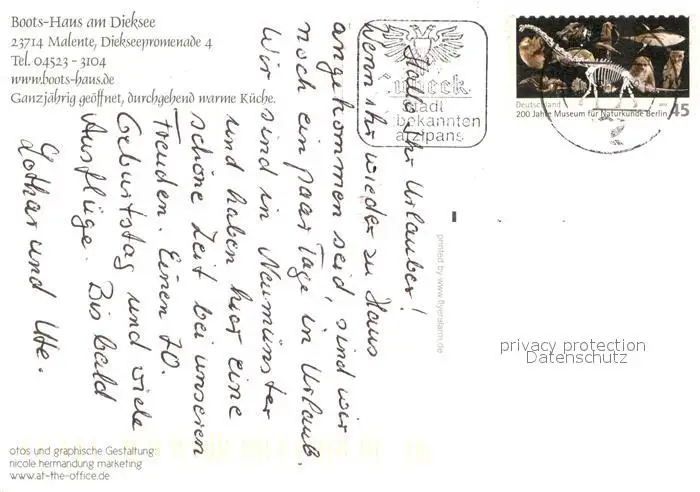 Boots-Haus am Dieksee
23714 Malente, Diekseepromenade 4
Tel. 04523 - 3104
www.boots-haus.de
Ganzjährig geöffnet, durchgehend warme Küche.
Hallo ihr Urlauber!
Wenn ihr wieder zu Haus
angekommen seid, sind wir
noch ein paar Tage in Urlaub.
Wir sind in Neumünster
und haben hier eine
schöne Zeit bei unseren
Freunden. Einen 70.
Geburtstag und viele
Ausflüge. Bis bald
Lothar und Ute.
Lübeck
Stadt
bekannten
arzipans
Deutschland
200 Jahre Museum für Naturkunde Berlin
45
printed by www.flyeralarm.de
privacy protection
Datenschutz
otos und graphische Gestaltung:
nicole hermandung marketing
www.at-the-office.de